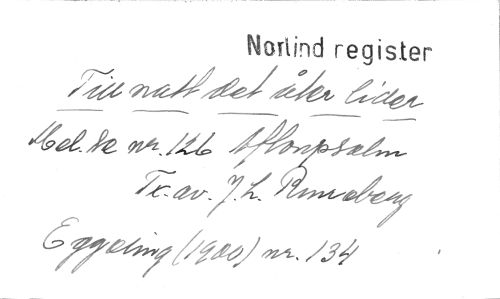 Norlind register
Till natt det åter lider
Mel. se nr. 126 Aftonpsalm
Tx. av. J. L. Runeberg
Eggeling (1900) nr. 134